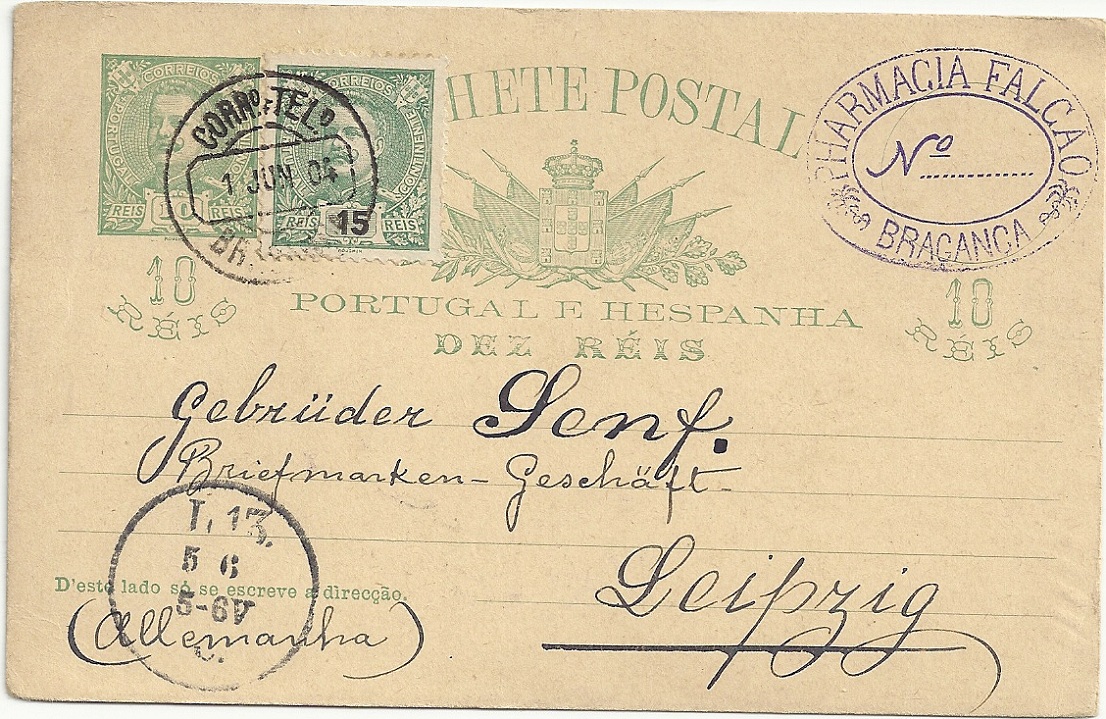 CORREIOS
PORTUGAL
REIS 10 REIS
CORREIOS
PORTUGAL CONTINENTE
REIS 15 REIS
CORRO. E TELO.
1 JUN 04
HETE POSTAL
PHARMACIA FALCÃO
No
BRAGANÇA
10 RÉIS
PORTUGAL E HESPANHA
10 RÉIS
DEZ RÉIS
Gebrüder Senf.
Briefmarken-Geschäft-
Leipzig
T. 13.
5 6
5-6V
D'este lado só se escreve a direcção.
(Allemanha)